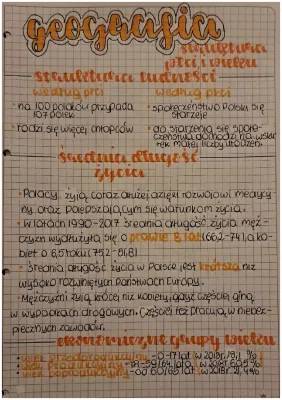 Geografia
struktura
płci i wieku
struktura ludności
według płci
według płci
• na 100 polaków przypada
107 polek
• społeczeństwo Polski się
starzeje
• rodzi się więcej chłopców
• do starzenia się społe-
czeństwa dochodzi na skut-
ek małej liczby urodzeń.
średnia długość
życia
• Polacy żyją coraz dłużej dzięki rozwojowi medycy-
ny oraz polepszającym się warunkom życia.
• W latach 1990-2017 średnia długość życia męż-
czyzn wydłużyła się o prawie 8 lat (66,2-74) a ko-
biet o 6,5 roku (75,2-81,8)
• średnia długość życia w Polsce jest krótsza niż
wysoko rozwiniętych państwach Europy.
• Mężczyźni żyją krócej niż kobiety, gdyż częściej giną
w wypadkach drogowych. Częściej też pracują w niebez-
piecznych zawodach.
ekonomiczne grupy wieku
• wiek przedprodukcyjny - 0-17 lat w 2018r. %
• wiek produkcyjny - 18-59/64 lata w 2018r. %
• wiek poprodukcyjny - od 60/65 lat w 2018r. 21,4%